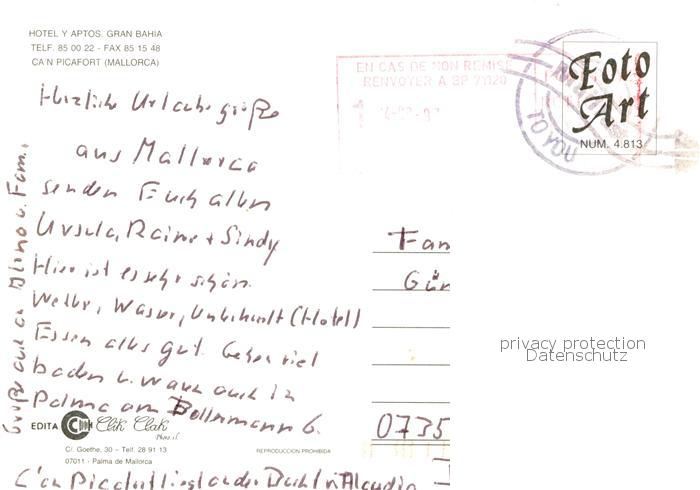 HOTEL Y APTOS. GRAN BAHIA
TELF. 85 00 22 - FAX 85 15 48
CA'N PICAFORT (MALLORCA)
EN CAS DE NON REMISE
RENVOYER A BP 71020
TO YOU
Foto
Art
NUM. 4.813
Herzliche Urlaubsgrüße
aus Mallorca
senden Euch allen
Ursula, Rainer + Sindy
Hier ist es sehr schön.
Wetter, Wasser, Unterkunft (Hotel)
Essen alles gut. Gehen viel
baden u. waren auch in
Palma am Ballermann 6.
Grüße auch an u. Fam.
Fam
Gün
0735
privacy protection
Datenschutz
EDITA Clik Clak
C/. Goethe, 30 - Telf. 28 91 13
07011 - Palma de Mallorca
REPRODUCCION PROHIBIDA
C'an Picafort liegt an der Bucht v. Alcudia